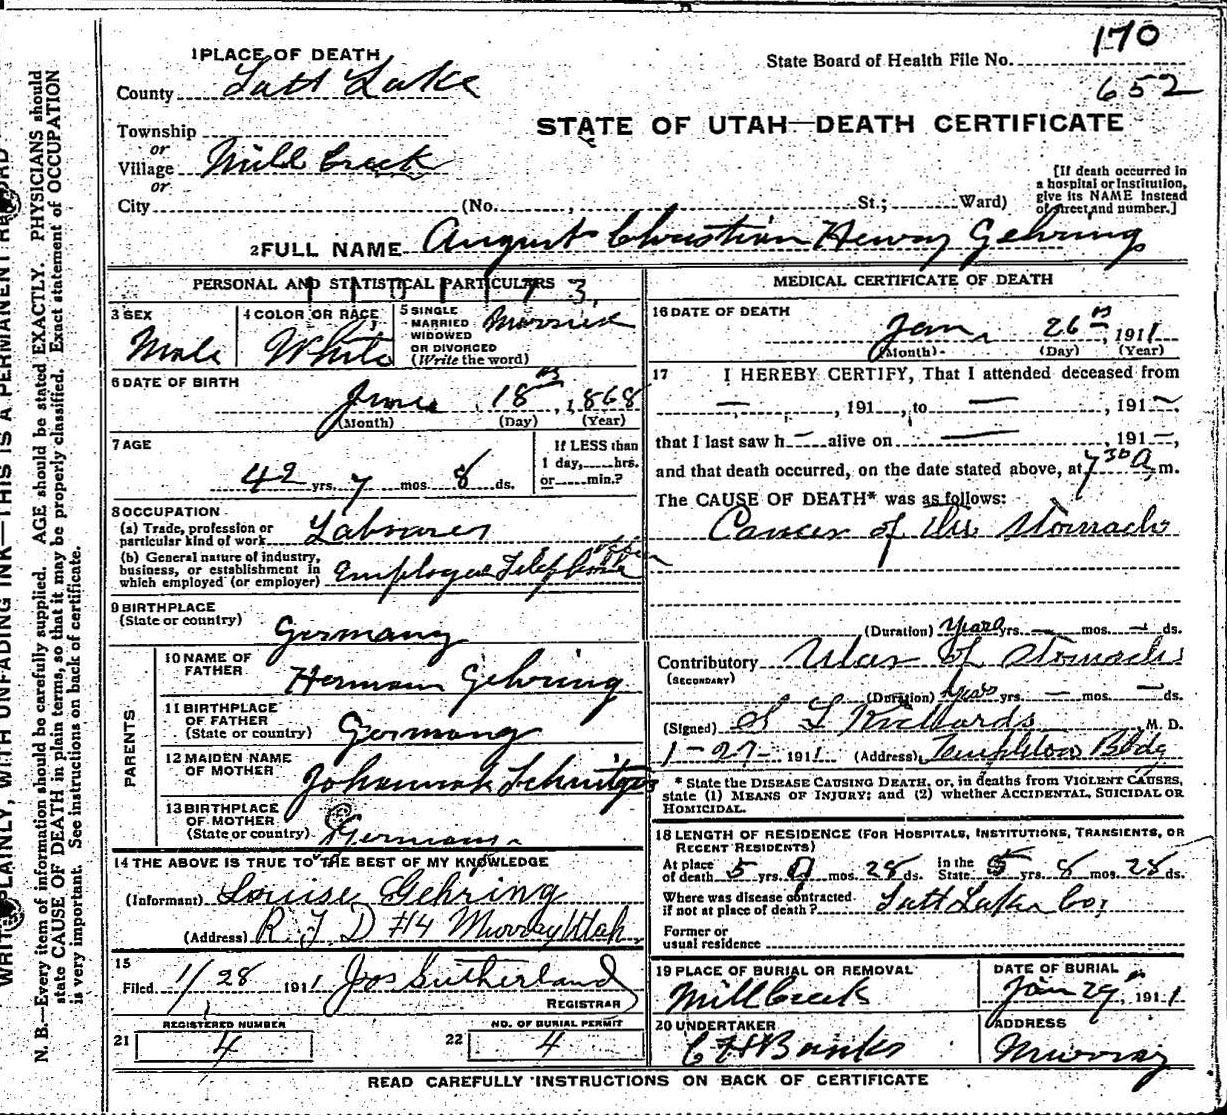 170
1 PLACE OF DEATH
State Board of Health File No.
652
County Salt Lake
STATE OF UTAH—DEATH CERTIFICATE
Township
or
Village Mill Creek
or
City (No. , St.; Ward)
[If death occurred in
a hospital or institution,
give its NAME instead
of street and number.]
2 FULL NAME August Christian Henry Gehring
PERSONAL AND STATISTICAL PARTICULARS
3 SEX
Male
4 COLOR OR RACE
White
5 SINGLE
MARRIED
WIDOWED
OR DIVORCED
(Write the word)
Married
6 DATE OF BIRTH
June 18th, 1868
(Month) (Day) (Year)
7 AGE
42 yrs. 7 mos. 8 ds.
If LESS than
1 day, hrs.
or min.?
8 OCCUPATION
(a) Trade, profession or
particular kind of work Labourer
(b) General nature of industry,
business, or establishment in
which employed (or employer) Employee Telephone
9 BIRTHPLACE
(State or country)
Germany
PARENTS
10 NAME OF
FATHER
Herman Gehring
11 BIRTHPLACE
OF FATHER
(State or country)
Germany
12 MAIDEN NAME
OF MOTHER
Johannah
13 BIRTHPLACE
OF MOTHER
(State or country)
Germany
14 THE ABOVE IS TRUE TO THE BEST OF MY KNOWLEDGE
(Informant) Louise Gehring
(Address) R.F.D #4 Murray Utah
15
Filed 1/28 1911 Jos Sutherland
REGISTRAR
REGISTERED NUMBER
21 4
NO. OF BURIAL PERMIT
22 4
MEDICAL CERTIFICATE OF DEATH
16 DATE OF DEATH
Jan. 26th, 1911
(Month) (Day) (Year)
17 I HEREBY CERTIFY, That I attended deceased from
— , 191 , to — , 191—,
that I last saw h— alive on — , 191—,
and that death occurred, on the date stated above, at 7 30 A. m.
The CAUSE OF DEATH* was as follows:
Cancer of the Stomach
(Duration) years yrs. — mos. — ds.
Contributory Ulcer of Stomach
(SECONDARY)
(Duration) years yrs. — mos. — ds.
(Signed) S L Richards M. D.
1-27- 1911 (Address) Templeton Bldg
* State the DISEASE CAUSING DEATH, or, in deaths from VIOLENT CAUSES,
state (1) MEANS OF INJURY; and (2) whether ACCIDENTAL, SUICIDAL OR
HOMICIDAL.
18 LENGTH OF RESIDENCE (FOR HOSPITALS, INSTITUTIONS, TRANSIENTS, OR
RECENT RESIDENTS)
At place
of death 5 yrs. mos. 28 ds.
In the
State 5 yrs. 8 mos. 28 ds.
Where was disease contracted
if not at place of death? Salt Lake Co.
Former or
usual residence
19 PLACE OF BURIAL OR REMOVAL
Mill Creek
DATE OF BURIAL
Jan 29th, 1911
20 UNDERTAKER
Banks
ADDRESS
Murray
READ CAREFULLY INSTRUCTIONS ON BACK OF CERTIFICATE
WRITE PLAINLY, WITH UNFADING INK—THIS IS A PERMANENT RECORD
N. B.—Every item of information should be carefully supplied. AGE should be stated EXACTLY. PHYSICIANS should
state CAUSE OF DEATH in plain terms, so that it may be properly classified. Exact statement of OCCUPATION
is very important. See instructions on back of certificate.